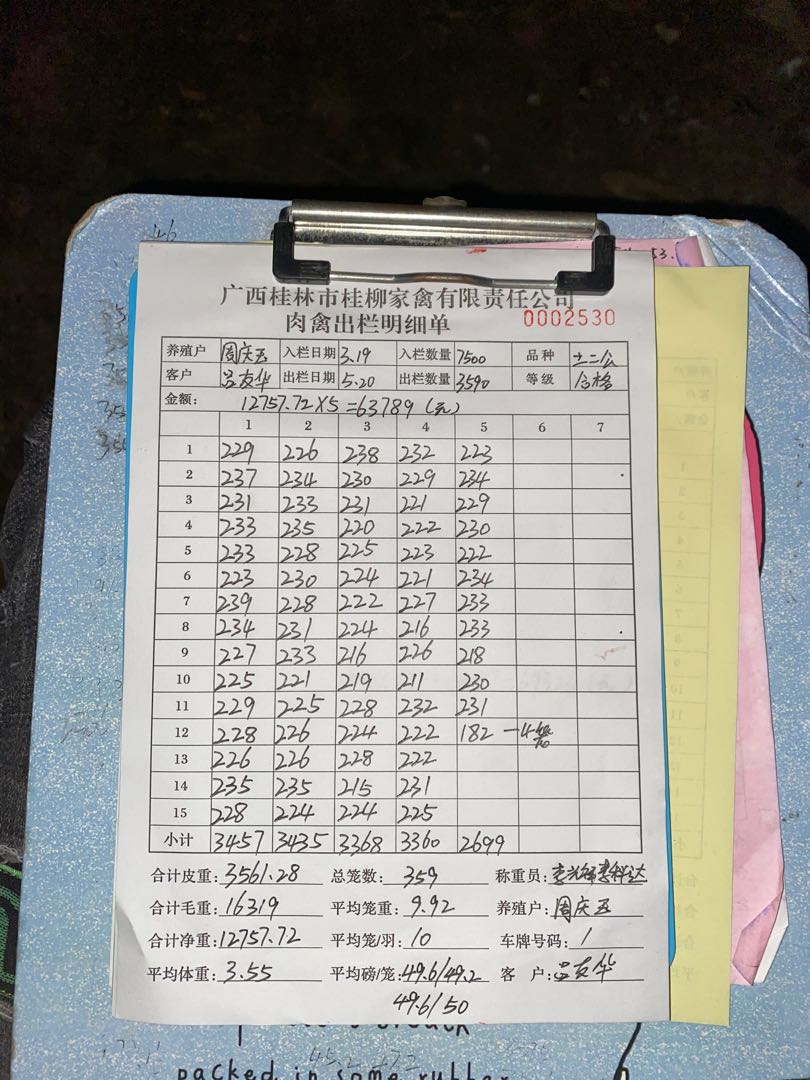 广西桂林市桂柳家禽有限责任公司
肉禽出栏明细单 0002530
养殖户 周庆玉 入栏日期 3.19 入栏数量 7500 品种 土二公
客户 吕友华 出栏日期 5.20 出栏数量 3590 等级 合格
金额: 12757.72×5=63789(元)
1 2 3 4 5 6 7
1 229 226 238 232 223
2 237 234 230 229 234
3 231 233 231 221 229
4 233 235 220 222 230
5 233 228 225 223 222
6 223 230 224 221 234
7 239 228 222 227 233
8 234 231 224 216 233
9 227 233 216 226 218
10 225 221 219 211 230
11 229 225 228 232 231
12 228 226 224 222 182 一4笼
13 226 226 228 222
14 235 235 215 231
15 228 224 224 225
小计 3457 3435 3368 3360 2699
合计皮重: 3561.28 总笼数: 359 称重员:
合计毛重: 16319 平均笼重: 9.92 养殖户: 周庆玉
合计净重: 12757.72 平均笼/羽: 10 车牌号码: /
平均体重: 3.55 平均磅/笼: 49.6/49.2 客户: 吕友华
49.6/50
packed in some rubber